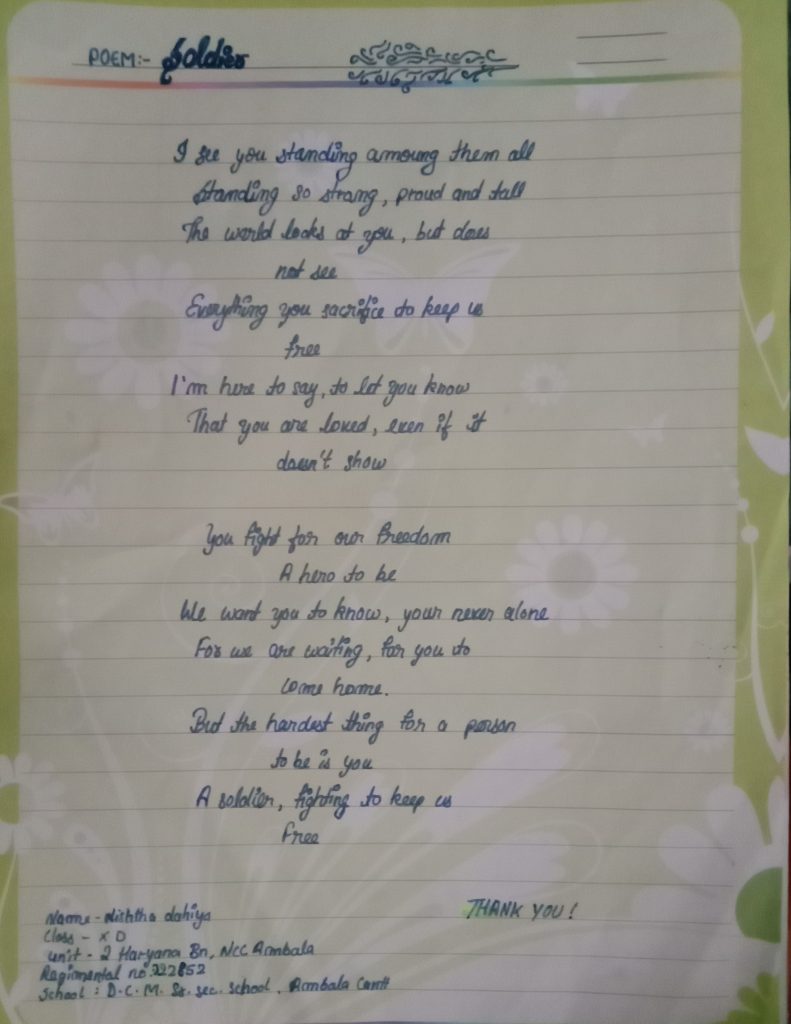 POEM:- Soldier
I see you standing amoung them all
Standing so strong, proud and tall
The world looks at you, but does
not see
Everything you sacrifice to keep us
free
I'm here to say, to let you know
That you are loved, even if it
doesn't show
You fight for our freedom
A hero to be
We want you to know, your never alone
For we are waiting, for you to
come home.
But the hardest thing for a person
to be is you
A soldier, fighting to keep us
free
THANK YOU!
Name - Nishtha dahiya
Class - X D
Unit - 2 Haryana Bn, NCC Ambala
Regimental no
School : D.C.M. Sr. sec. School, Ambala Cantt